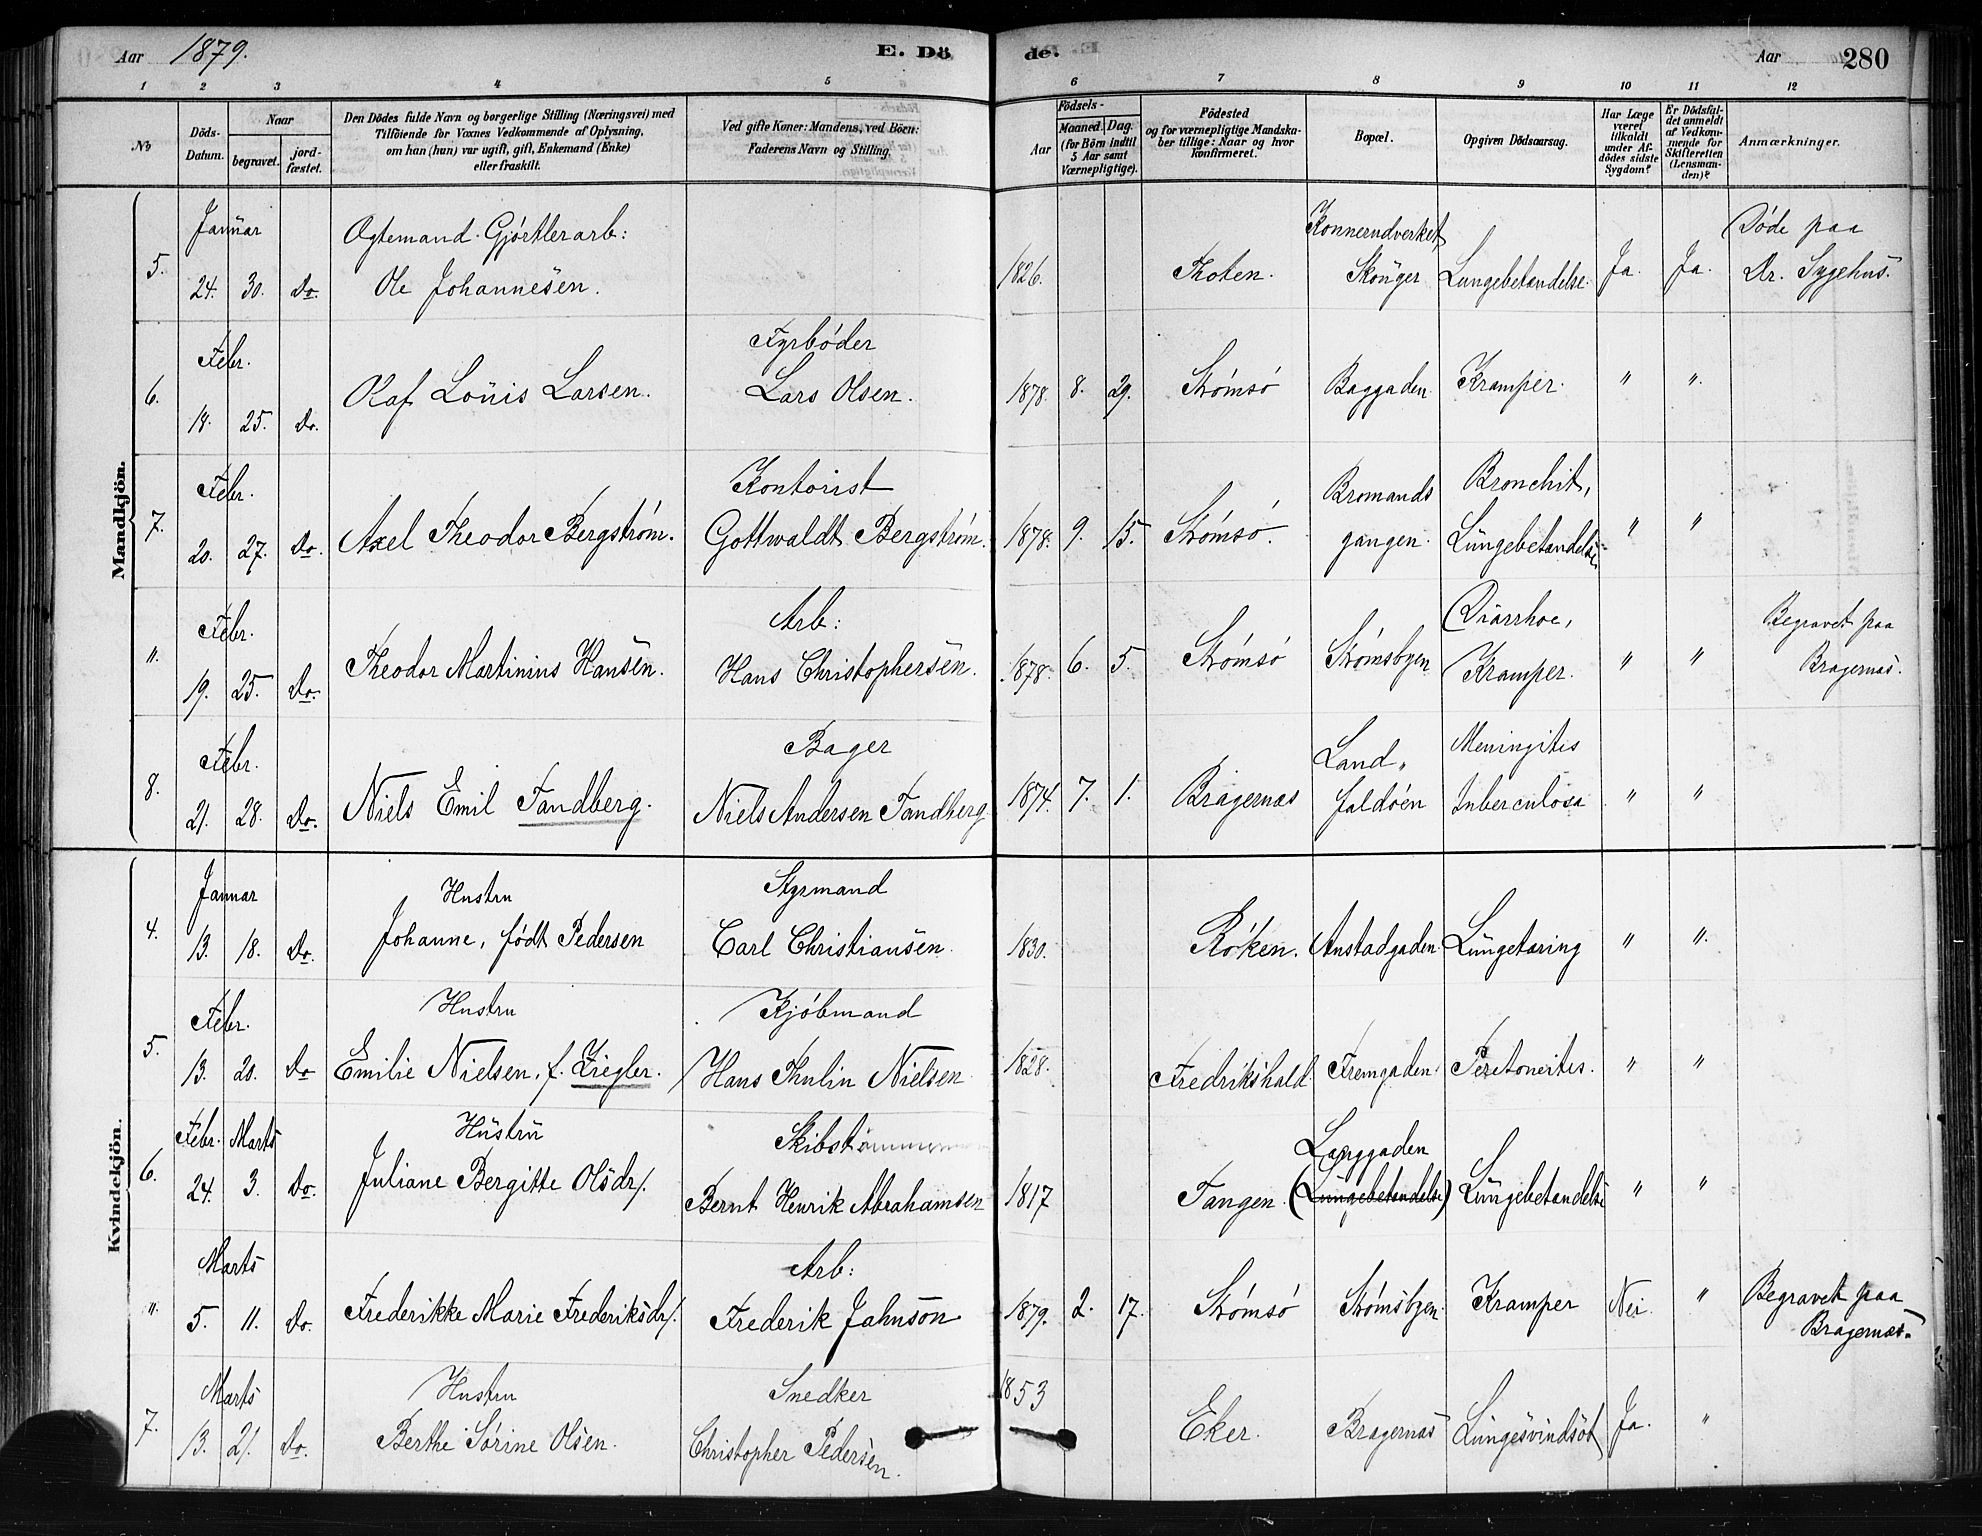 Aar 1879. E. Dö de. Aar 280
1 2 3 4 5 6 7 8 9 10 11 12
No
Döds-Datum.
Naar
begravet.
jord-fæstet.
Den Dödes fulde Navn og borgerlige Stilling (Næringsvei) med
Tilföiende for Voxnes Vedkommende af Oplysning,
om han (hun) var ugift, gift, Enkemand (Enke)
eller fraskilt.
Ved gifte Koner: Mandens, ved Börn:
Faderens Navn og Stilling.
Födsels-
Aar
Maaned. Dag.
(for Börn indtil
5 Aar samt
Værnepligtige).
Födested
og for værnepligtige Mandska-
ber tillige: Naar og hvor
konfirmeret.
Bopæl.
Opgiven Dödsaarsag.
Har Læge
været
tilkaldt
under Af-
dödes sidste
Sygdom?
Er Dödsfal-
det anmeldt
af Vedkom-
mende for
Skifteretten
(Lensman-
den)?
Anmærkninger.
Mandkjön.
Januar Ogtemand. Gjørtlerarb: Konnerudverket Døde paa
5. 24. 30. Do. Ole Johannesen. 1826. Thoten. Skouger Lungebetændelse. Ja. Ja. Dr. Sygehus.
Febr. Fyrbøder
6. 18. 25. Do. Olaf Louis Larsen. Lars Olsen. 1878. 8. 29. Strømsø Baggaden. Kramper. " ".
Febr. Kontorist Bromands Bronchit,
7. 20. 27. Do. Axel Theodor Bergstrøm. Gottwaldt Bergstrøm. 1878. 9. 15. Strømsø. gangen. Lungebetændelse " "
Febr. Arb: Diarrhoe, Begravet paa
". 19. 25. Do. Theodor Martinius Hansen. Hans Christophersen. 1878. 6. 5. Strømsø Strømsbyen Kramper. " " Bragernæs.
Febr. Bager Land- Meningitis
8. 21. 28. Do. Niels Emil Tandberg. Niels Andersen Tandberg 1874. 7. 1. Bragernæs faldøen tuberculosa " "
Kvindekjön.
Januar Hustru Styrmand
4. 13. 18. Do. Johanne, født Pedersen Carl Christiansen. 1830. Røken. Anstadgaden. Lungetæring " ".
Febr. Hustru Kjøbmand
5. 13. 20. Do Emilie Nielsen, f. Ziegler. Hans Thulin Nielsen. 1828. Fredrikshald Fremgaden. Peretoneitis. " "
Febr. Marts Hustru Skibstømmerm Langgaden
6. 24. 3. Do. Juliane Bergitte Olsdr/. Bernt Henrik Abrahamsen 1817 Tangen. (Lungebetændelse) Lungebetændelse " "
Marts Arb: Begravet paa
". 5. 11. Do. Frederikke Marie Frederiksdr/. Frederik Jahnson 1879. 2. 17. Strømsø Strømsbyen. Kramper Nei. " Bragernæs.
Marts Hustru Snedker 1853
7. 13. 21. Do. Berthe Sørine Olsen. Christopher Pedersen. Eker. Bragernæs Lungesvindsot Ja. "